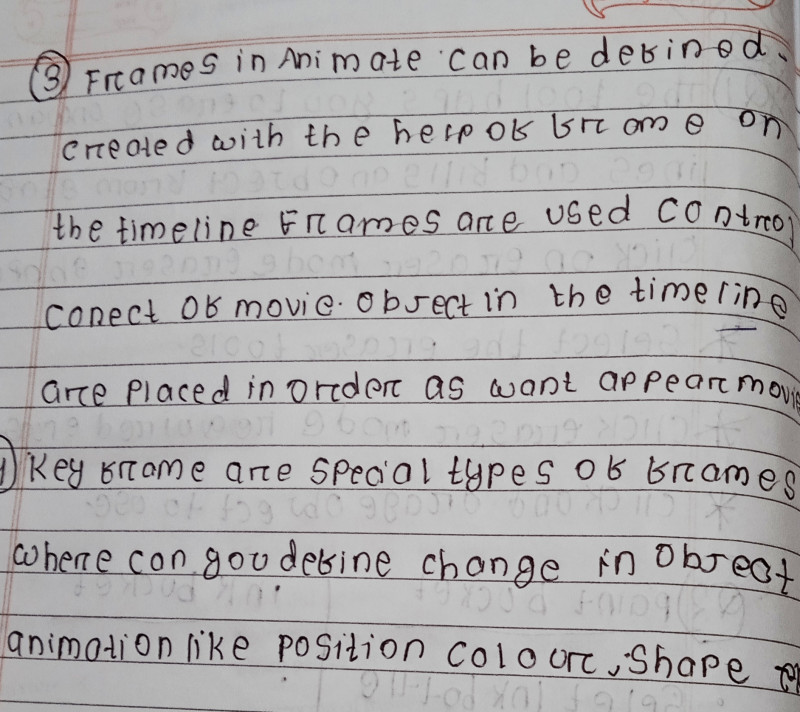 ③ Frames in Animate can be defined.
created with the help of frame on
the timeline Frames are used control
conect of movie. Object in the timeline
are placed in order as want appear movie
Key frame are special types of frames
where can you define change in Object
animation like position colour, shape